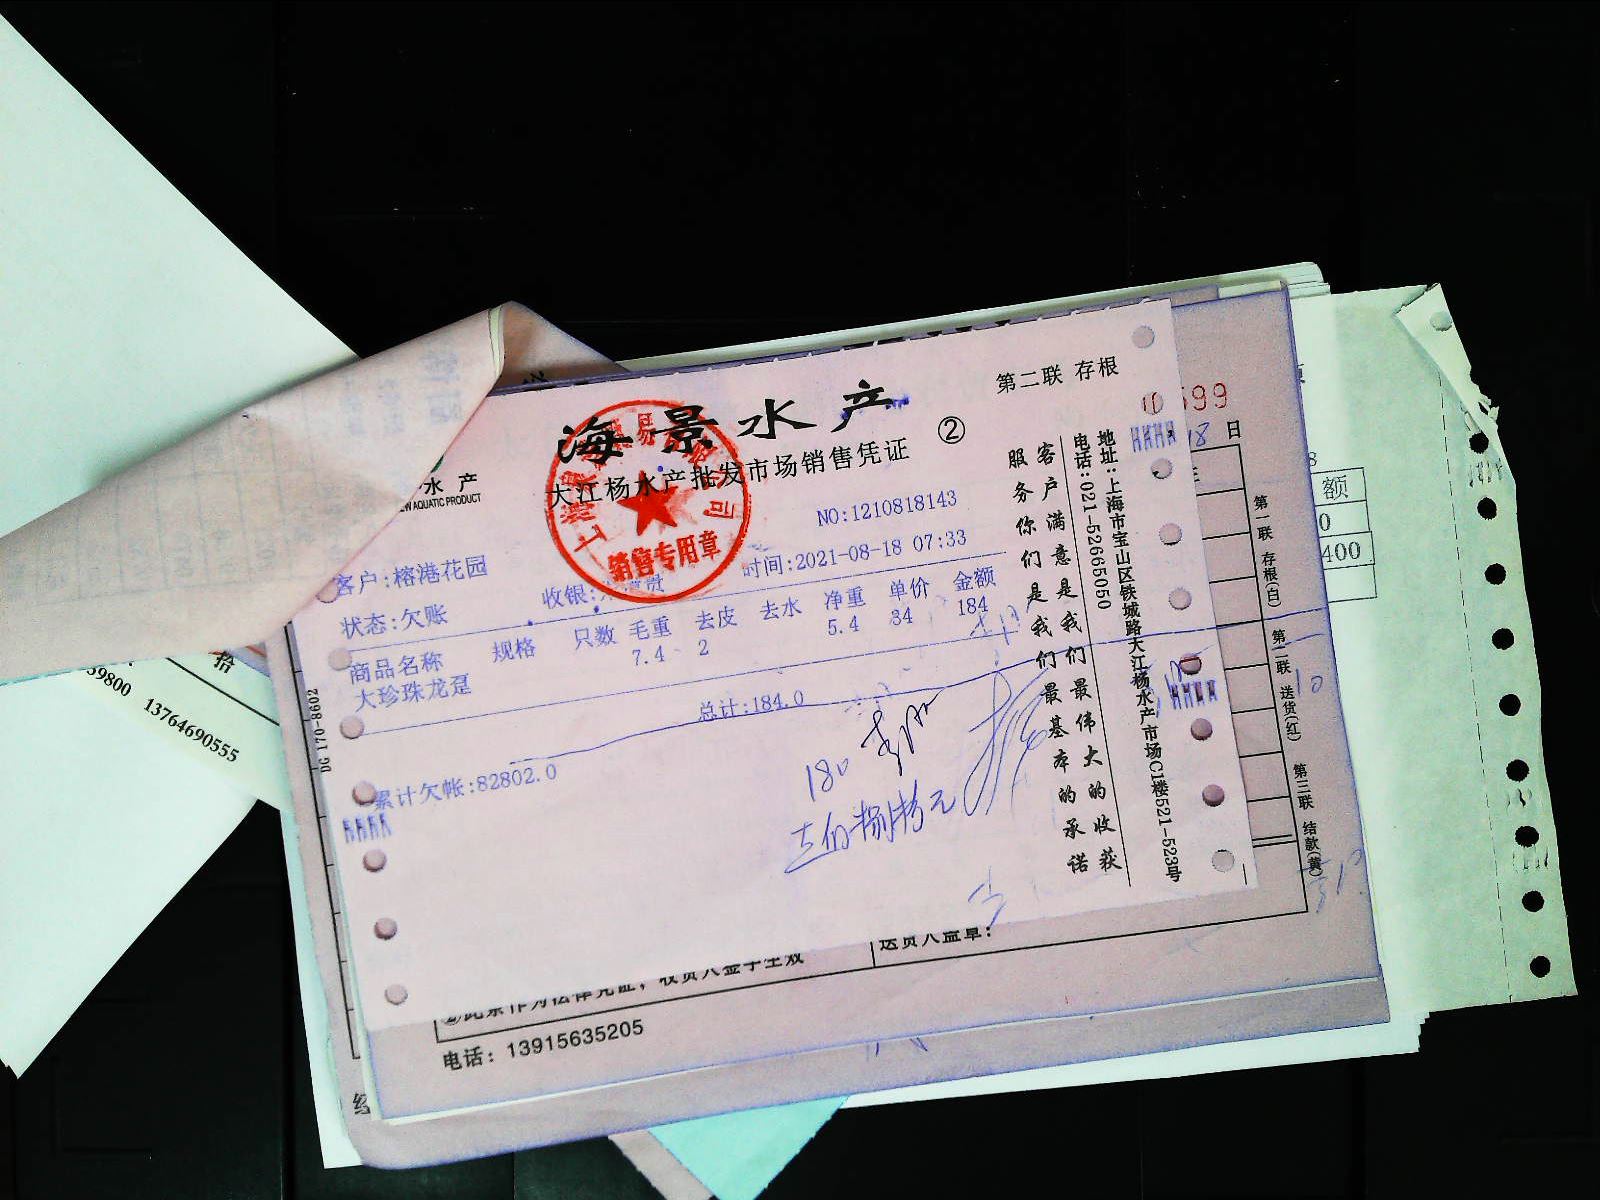 第二联 存根
海景水产
大江杨水产批发市场销售凭证 ②
水产
EW AQUATIC PRODUCT
NO:1210818143
客户:榕港花园
时间:2021-08-18 07:33
状态:欠账
收银:
商品名称 规格 只数 毛重 去皮 去水 净重 单价 金额
大珍珠龙趸 7.4 2 5.4 34 184
总计:184.0
累计欠帐:82802.0
180
销售专用章
服务你们是我们最基本的承诺
客户满意是我们最伟大的收获
电话:021-52665050
地址:上海市宝山区铁城路大江杨水产市场C1楼521-523号
599
18 日
第一联 存根(白)
第二联 送货(红)
第三联 结款(黄)
额
0
400
拾
39800 13764690555
DG 170-8602
送货人盖章:
电话: 13915635205